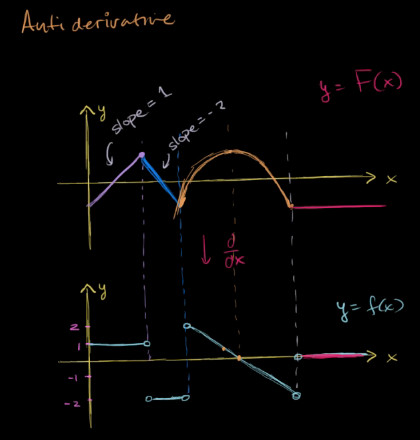 Anti derivative
y = F(x)
y
slope = 1
slope = -2
x
d
dx
y
y = f(x)
2
1
x
-1
-2